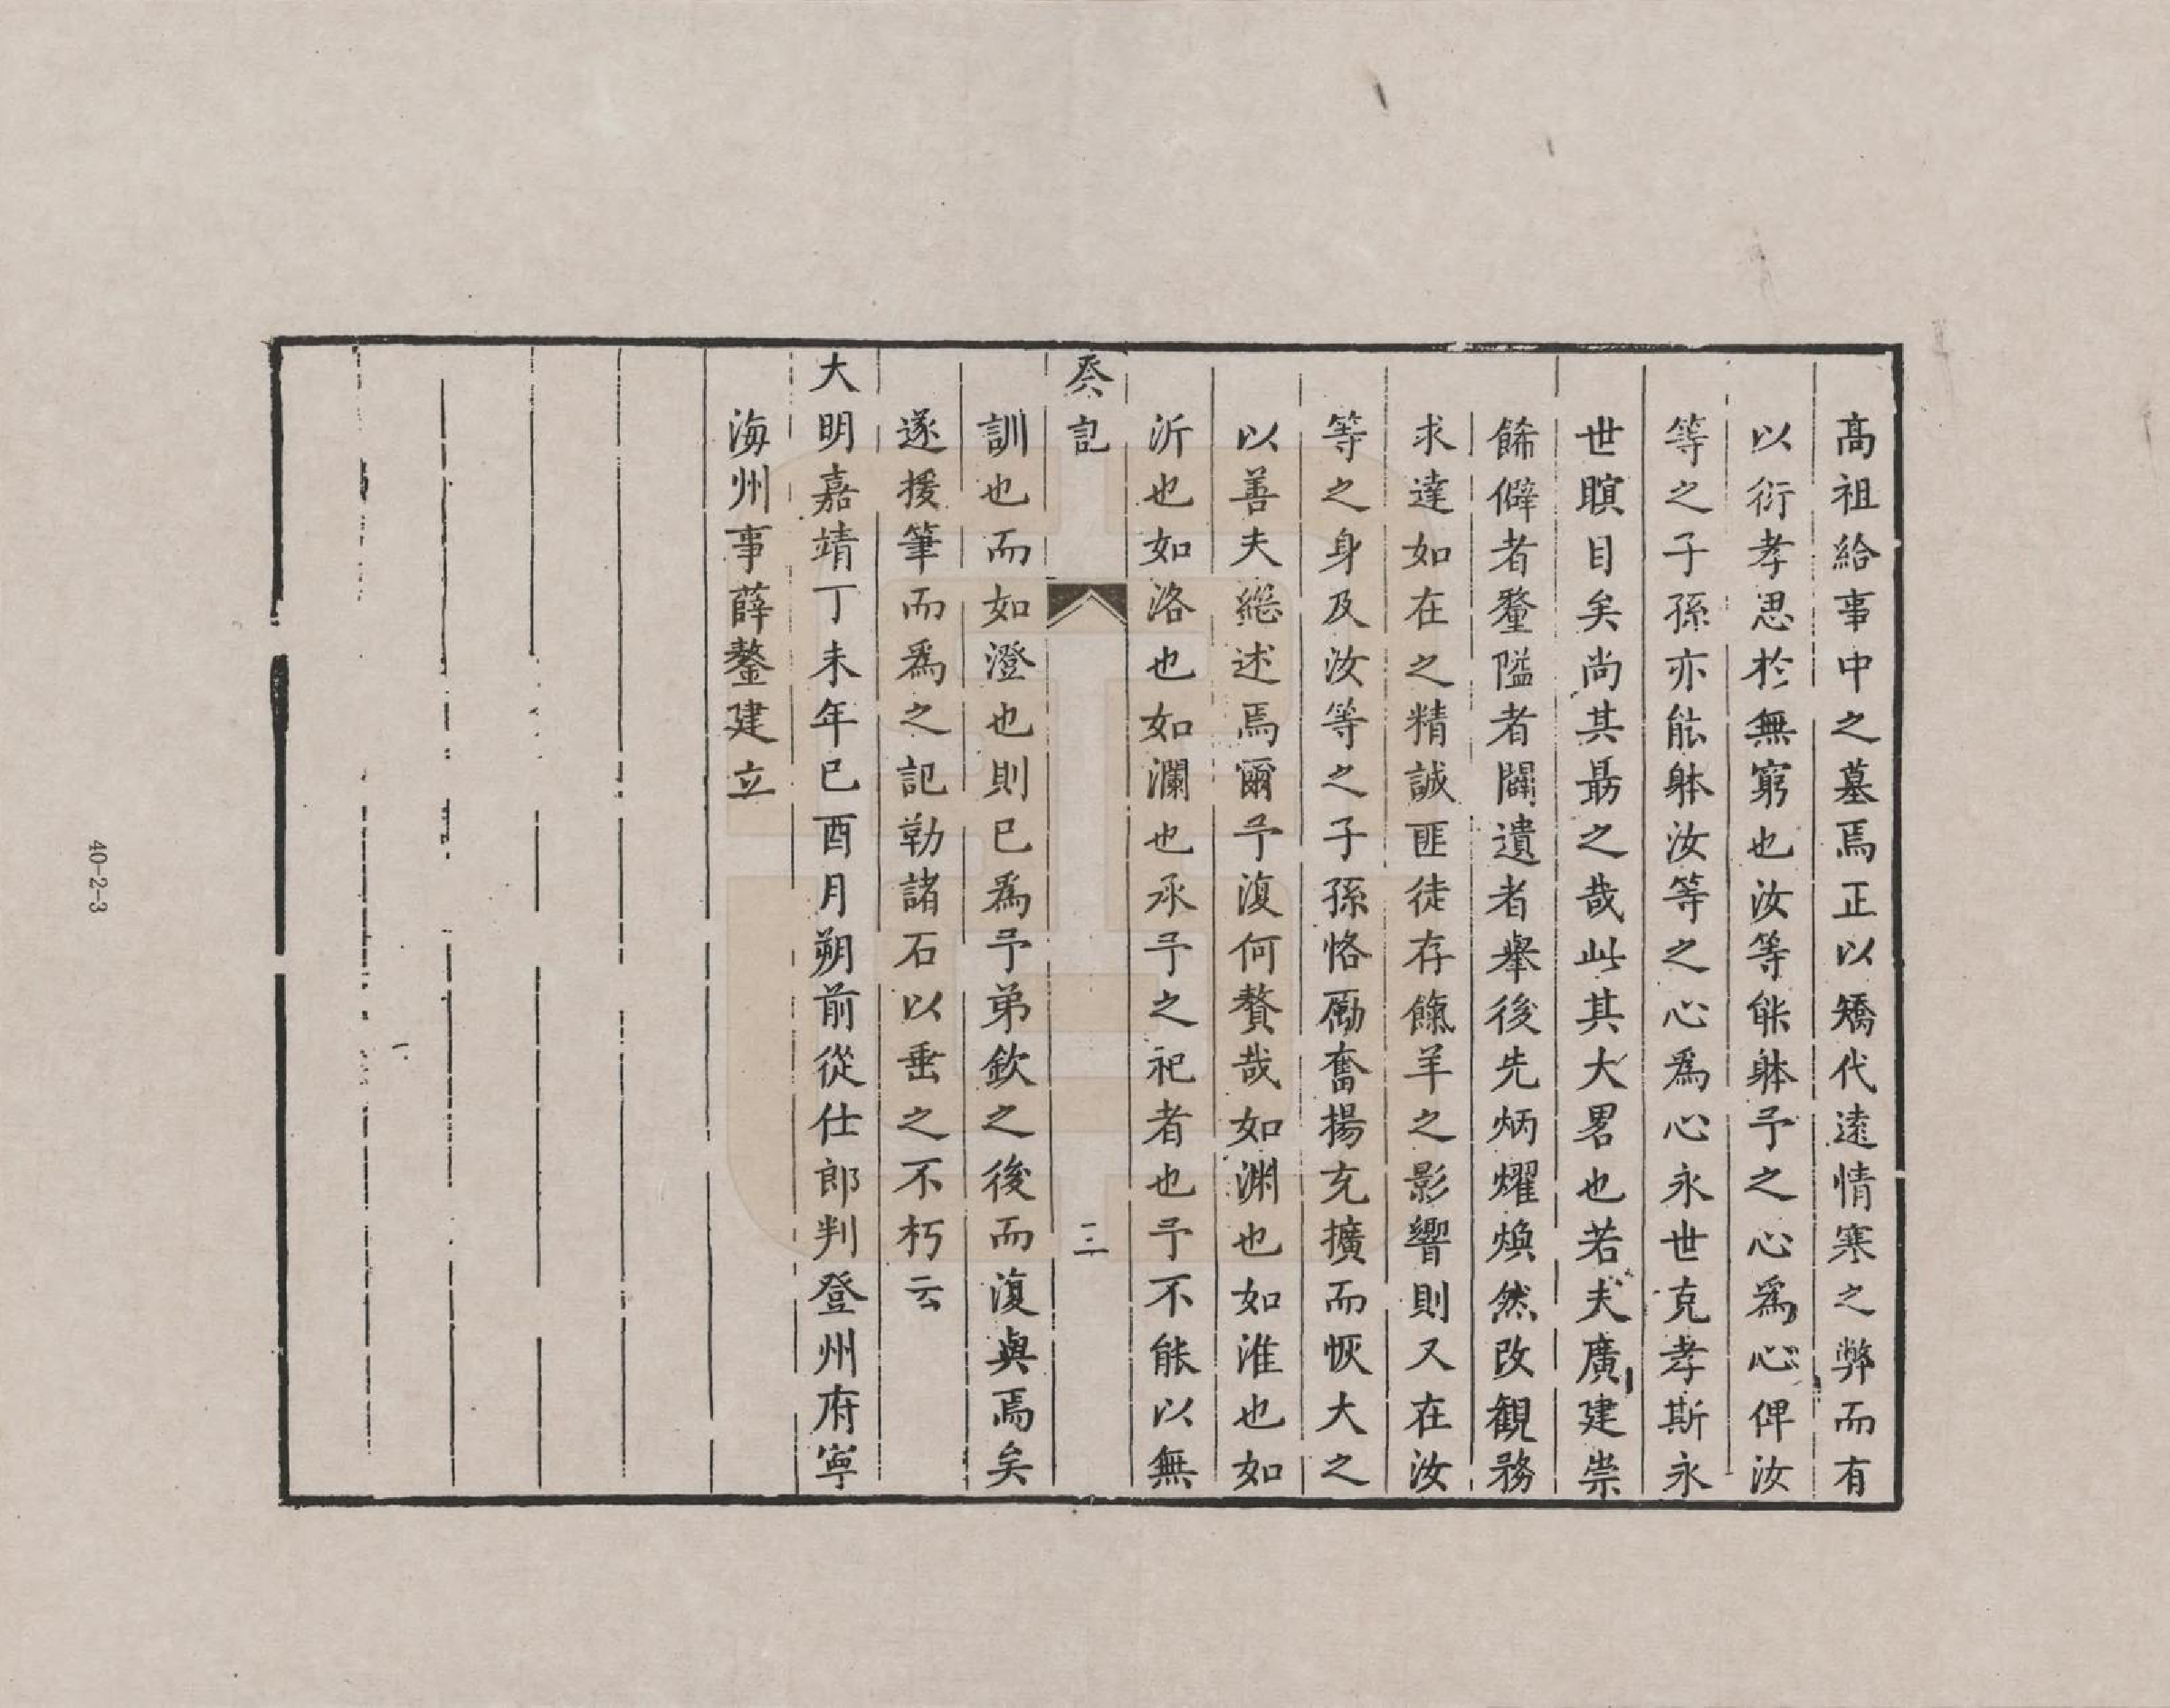 髙祖給事中之墓焉正以矯代遠情寒之弊而有
以衍孝思於無窮也汝等能躰予之心爲心俾汝
等之子孫亦能躰汝等之心爲心永世克孝斯永
世瞑目矣尚其勗之哉此其大畧也若夫廣建崇
餙僻者釐隘者闢遺者舉後先炳燿煥然改觀務
求達如在之精誠匪徒存餼羊之影響則又在汝
等之身及汝等之子孫恪勵奮揚充擴而恢大之
以善夫継述焉爾予復何贅哉如渊也如淮也如
沂也如洛也如瀾也承予之祀者也予不能以無
癸記
三
訓也而如澄也則已爲予弟欽之後而復與焉矣
遂援筆而爲之記勒諸石以垂之不朽云
大明嘉靖丁未年已酉月朔前從仕郎判登州府寧
海州事薛鏊建立
40-2-3